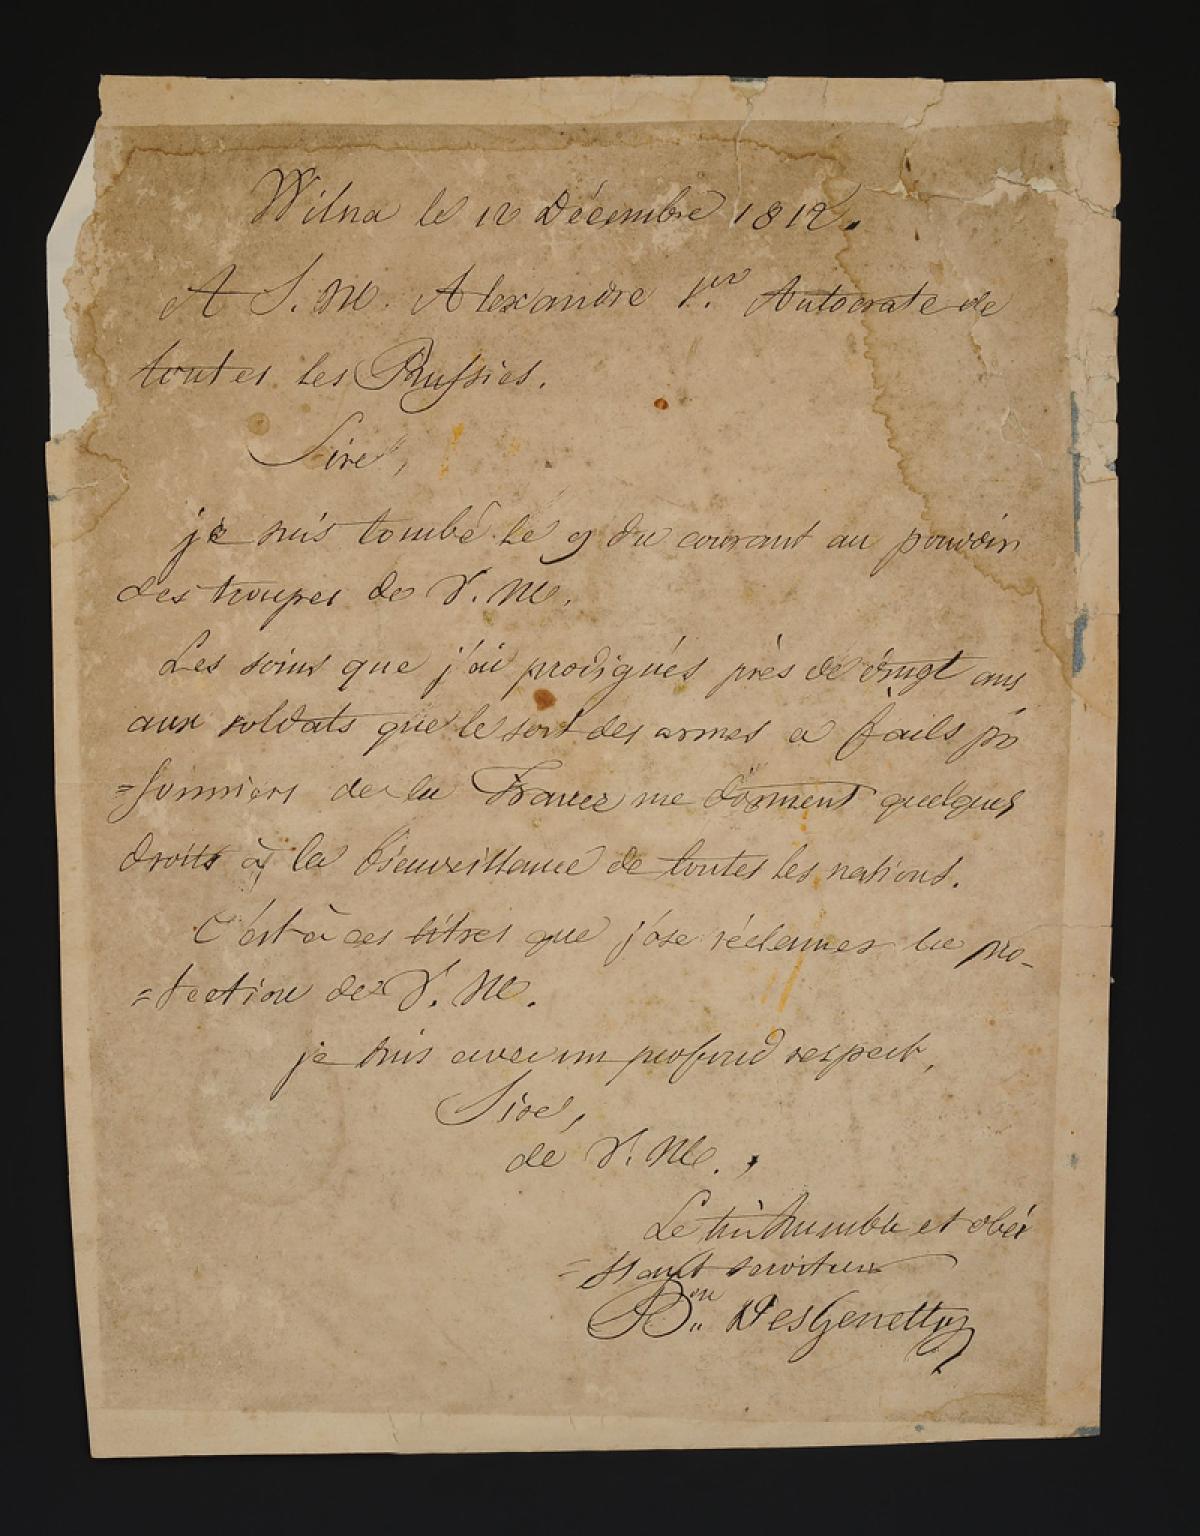 Wilna le 12 Décembre 1812.
A S. M. Alexandre 1.er Autocrate de
toutes les Russies.
Sire,
je suis tombé le 9 du courant au pouvoir
des troupes de V. M.
Les soins que j'ai prodigués près de vingt ans
aux soldats que le sort des armes a faits pri
=sonniers de la France me donnent quelques
droits à la bienveillance de toutes les nations.
C'est à ces titres que j'ose réclamer la pro-
=tection de V. M.
je suis avec un profond respect,
Sire,
de V. M.,
Le très humble et obéi
=ssant serviteur
B.on DesGenettes